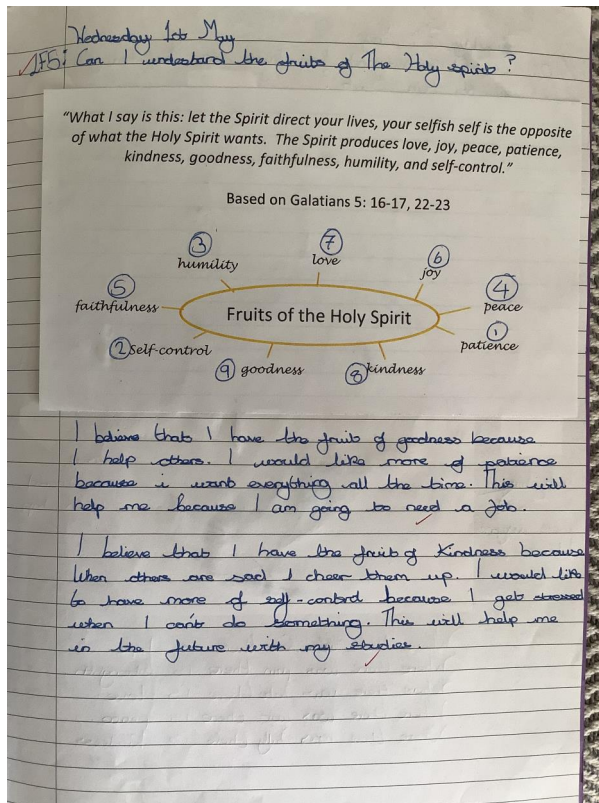 Wednesday 1st May
LF5: Can I understand the fruits of The Holy spirit?
"What I say is this: let the Spirit direct your lives, your selfish self is the opposite
of what the Holy Spirit wants. The Spirit produces love, joy, peace, patience,
kindness, goodness, faithfulness, humility, and self-control."
Based on Galatians 5: 16-17, 22-23
7
3
love
6
humility
joy
5
4
faithfulness
Fruits of the Holy Spirit
peace
1
2 Self-control
patience
9 goodness
8 kindness
I believe that I have the fruit of goodness because
I help others. I would like more of patience
because i want everything all the time. This will
help me because I am going to need a Job.
I believe that I have the fruit of Kindness because
when others are sad I cheer them up. I would like
to have more of self-control because I get stressed
when I can't do something. This will help me
in the future with my studies.